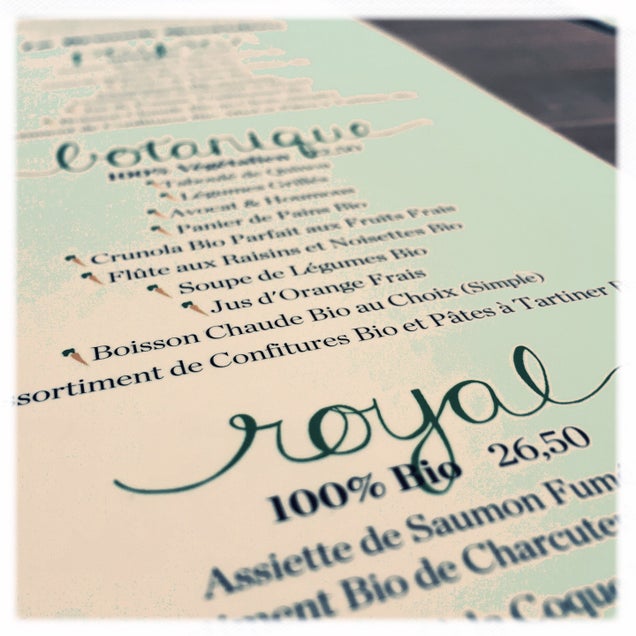 botanique
100% Végétalien
Taboulé de Quinoa
Légumes Grillés
Avocat & Houmous
Panier de Pains Bio
Crunola Bio Parfait aux Fruits Frais
Flûte aux Raisins et Noisettes Bio
Soupe de Légumes Bio
Jus d'Orange Frais
Boisson Chaude Bio au Choix (Simple)
ssortiment de Confitures Bio et Pâtes à Tartiner
royal
100% Bio 26,50
Assiette de Saumon Fum
iment Bio de Charcute
Coque